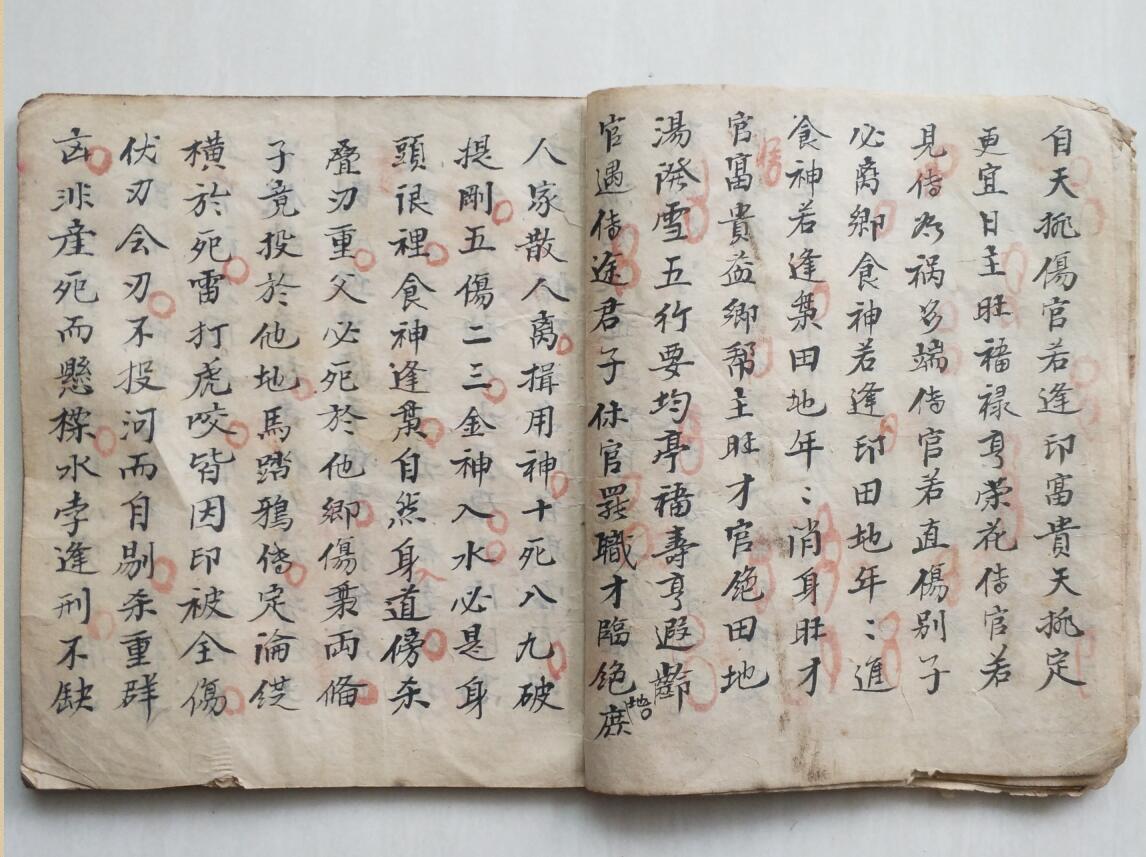 自天挑傷官若逢印富貴天挑定
更宜日主旺福禄亨荣花俻官若
見俻為祸多端俻官若直傷别子
必离鄉食神若逢印田地年：進
食神若逢梟田地年：消身旺才
官富貴益鄉帮主旺才官绝田地
湯潑雪五行要均亭福壽亨遐齡
官遇俻途君子休官罷職才臨绝庶地
人家散人离揖用神十死八九破
提剛五傷二三金神入水必是身
頭很裡食神逢梟自然身道傍杀
疊刃重父必死於他鄉傷梟両俻
子竟投於他地馬踏鴉俻定論從
横於死雷打虎咬皆因印被全傷
伏刃会刃不投河而自刎杀重群
凶非産死而懸樑水孛逢刑不缺